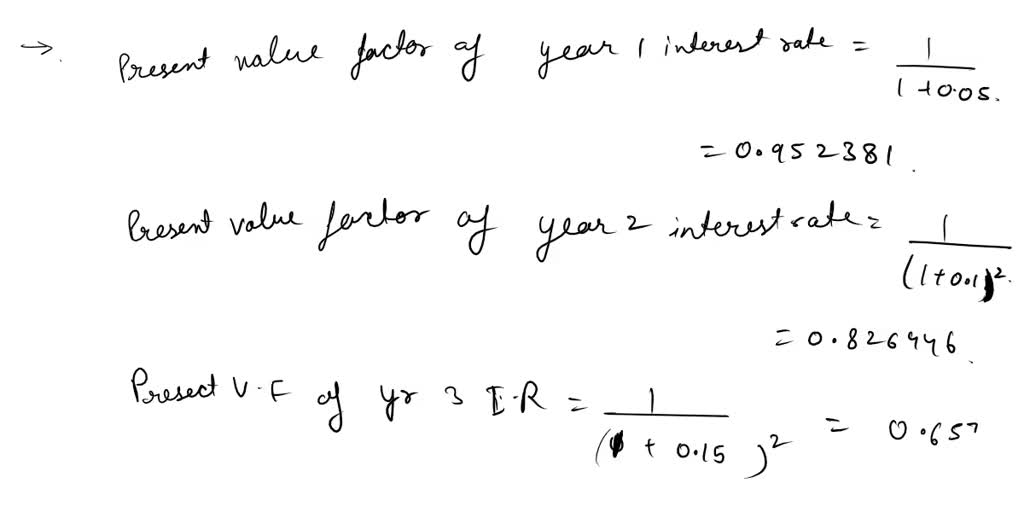 → Present value factor of year 1 interest rate = 1 / 1+0.05.
= 0.952381.
Present value factor of year 2 interest rate = 1 / (1+0.1)².
= 0.826446.
Presect V.F of yr 3 I.R = 1 / (1 + 0.15)² = 0.657